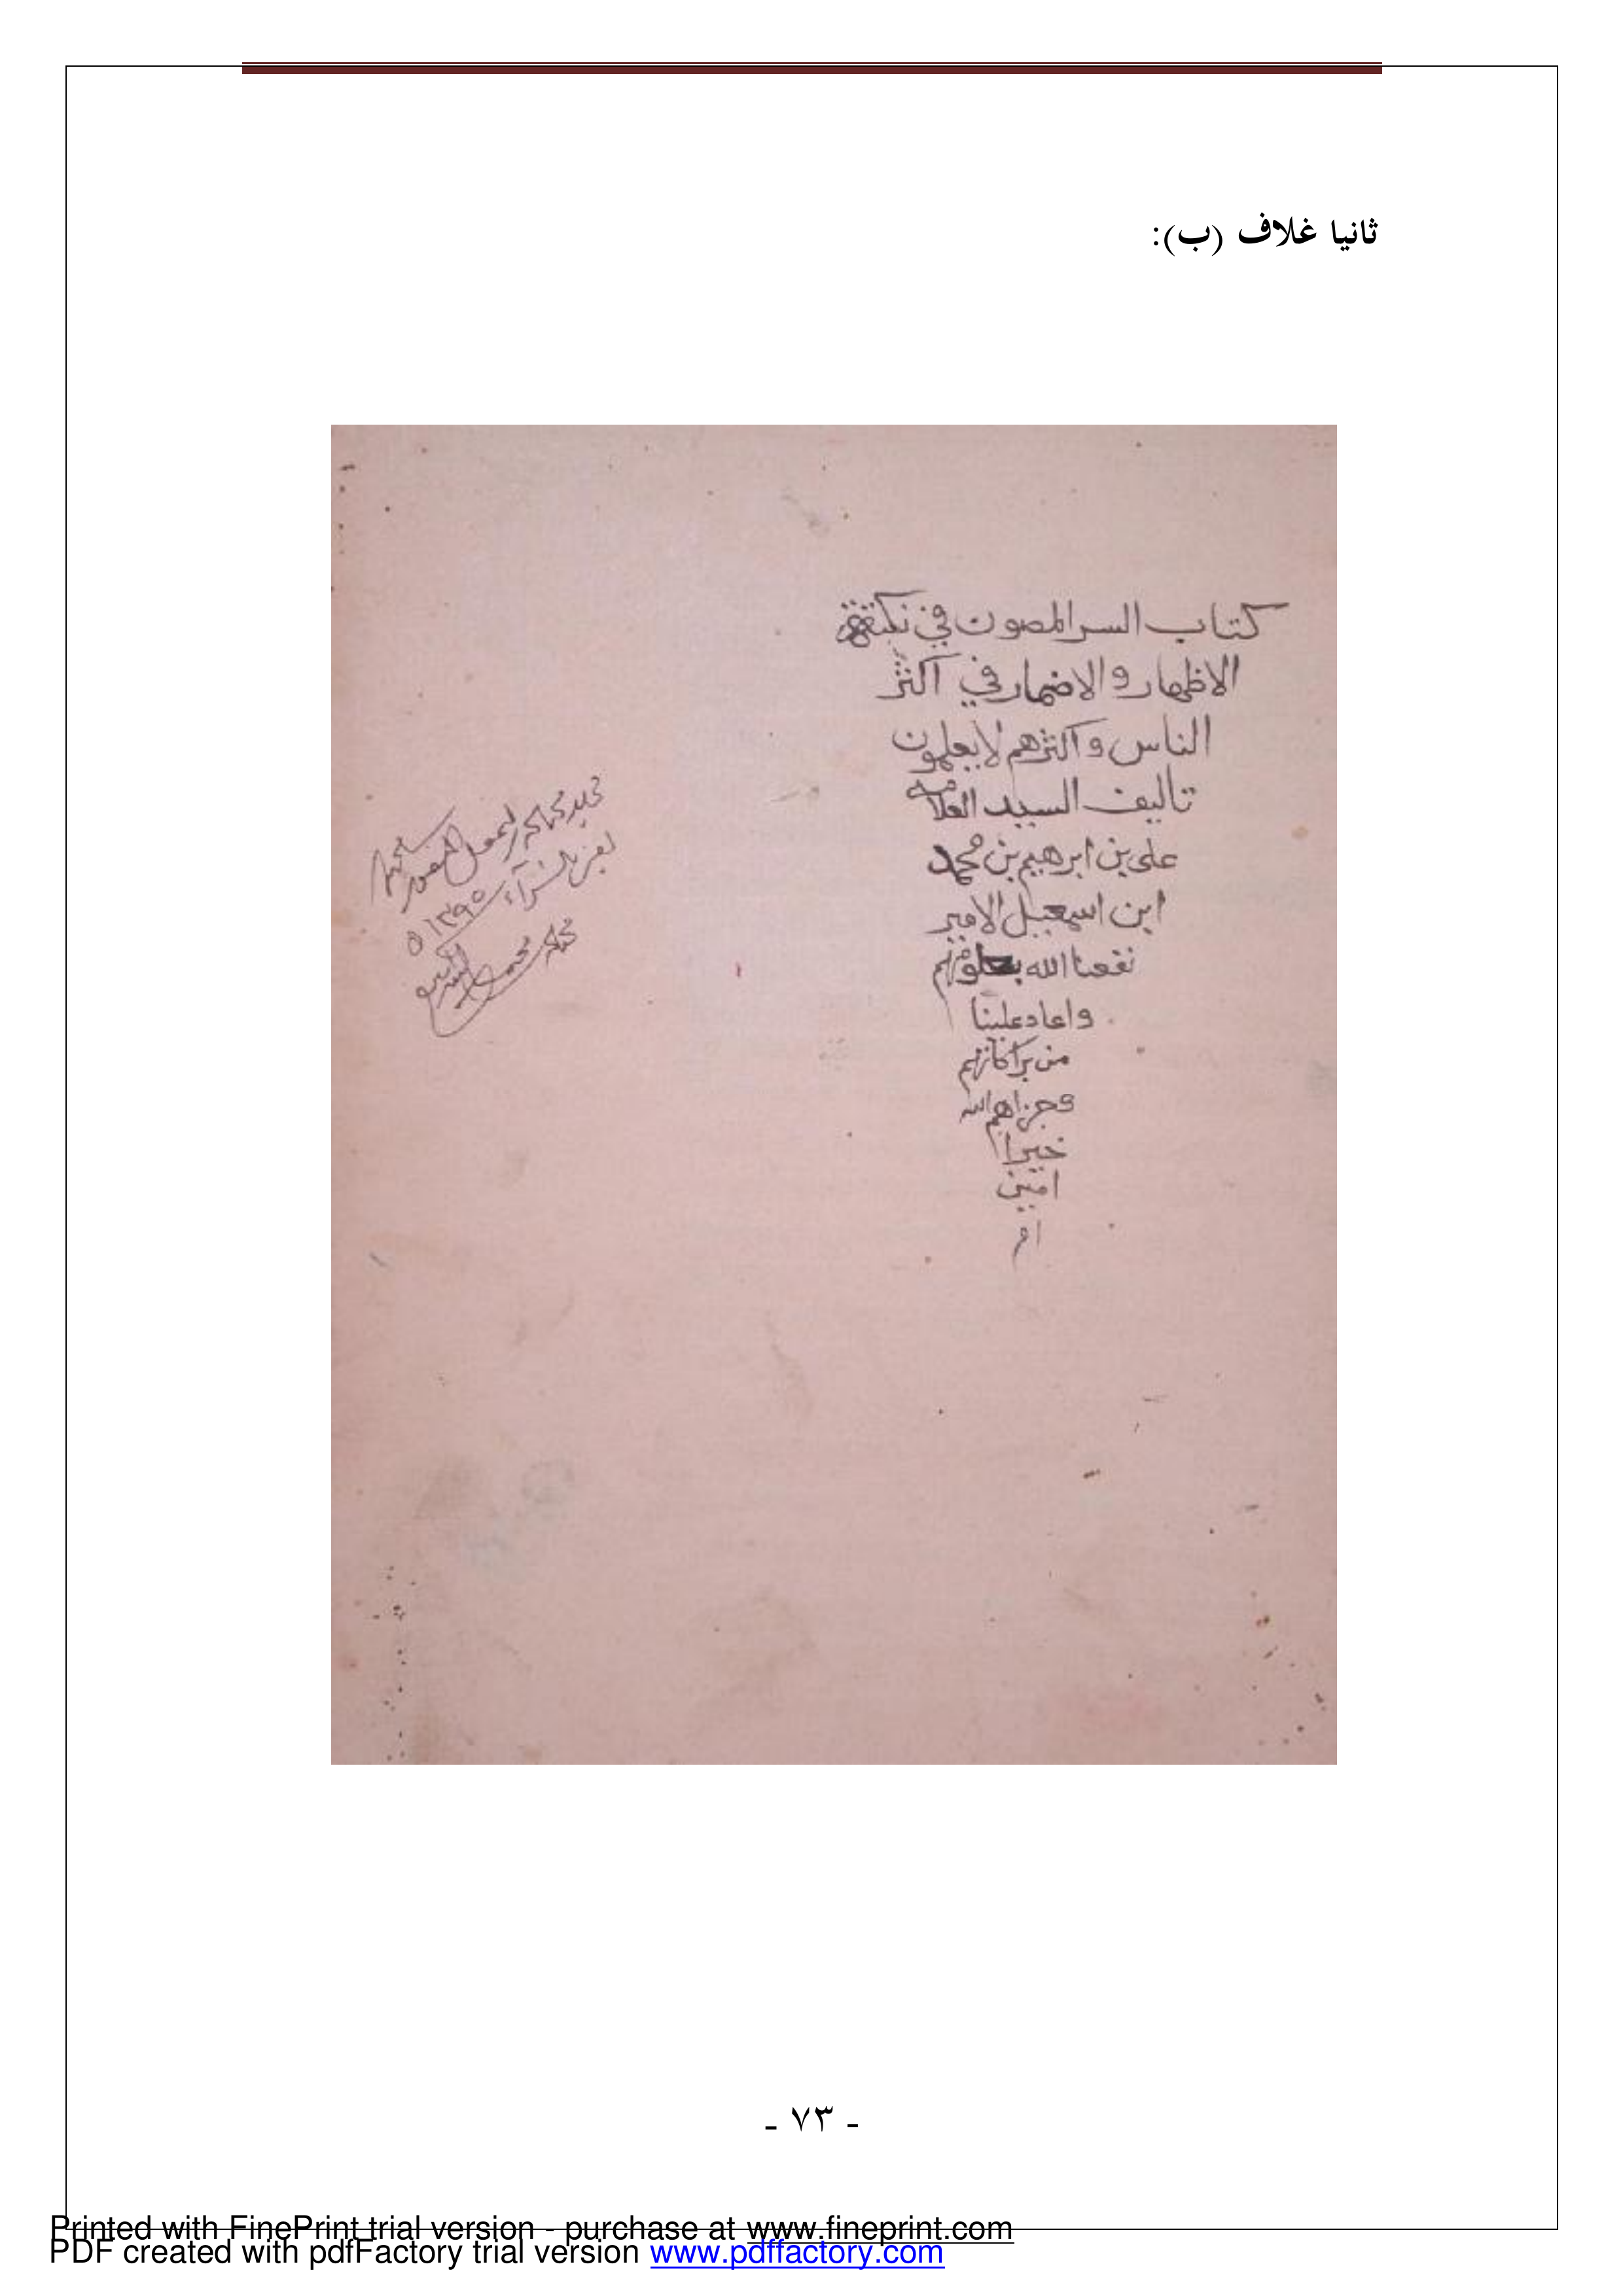 ثانيا غلاف (ب):
كتاب السر المصون في نكتة
الاظهار والاضمار في اكثر
الناس واكثرهم لا يعلمون
تاليف السيد العلامه
على بن ابرهيم بن محمد
ابن اسمعيل الامير
نفعنا الله بعلومهم
واعاد علينا
من بركاتهم
وجزاهم الله
خيرا
امين
ام
١٣٩٥
محمد
- ٧٣ -
Printed with FinePrint trial version - purchase at www.fineprint.com
PDF created with pdfFactory trial version www.pdffactory.com